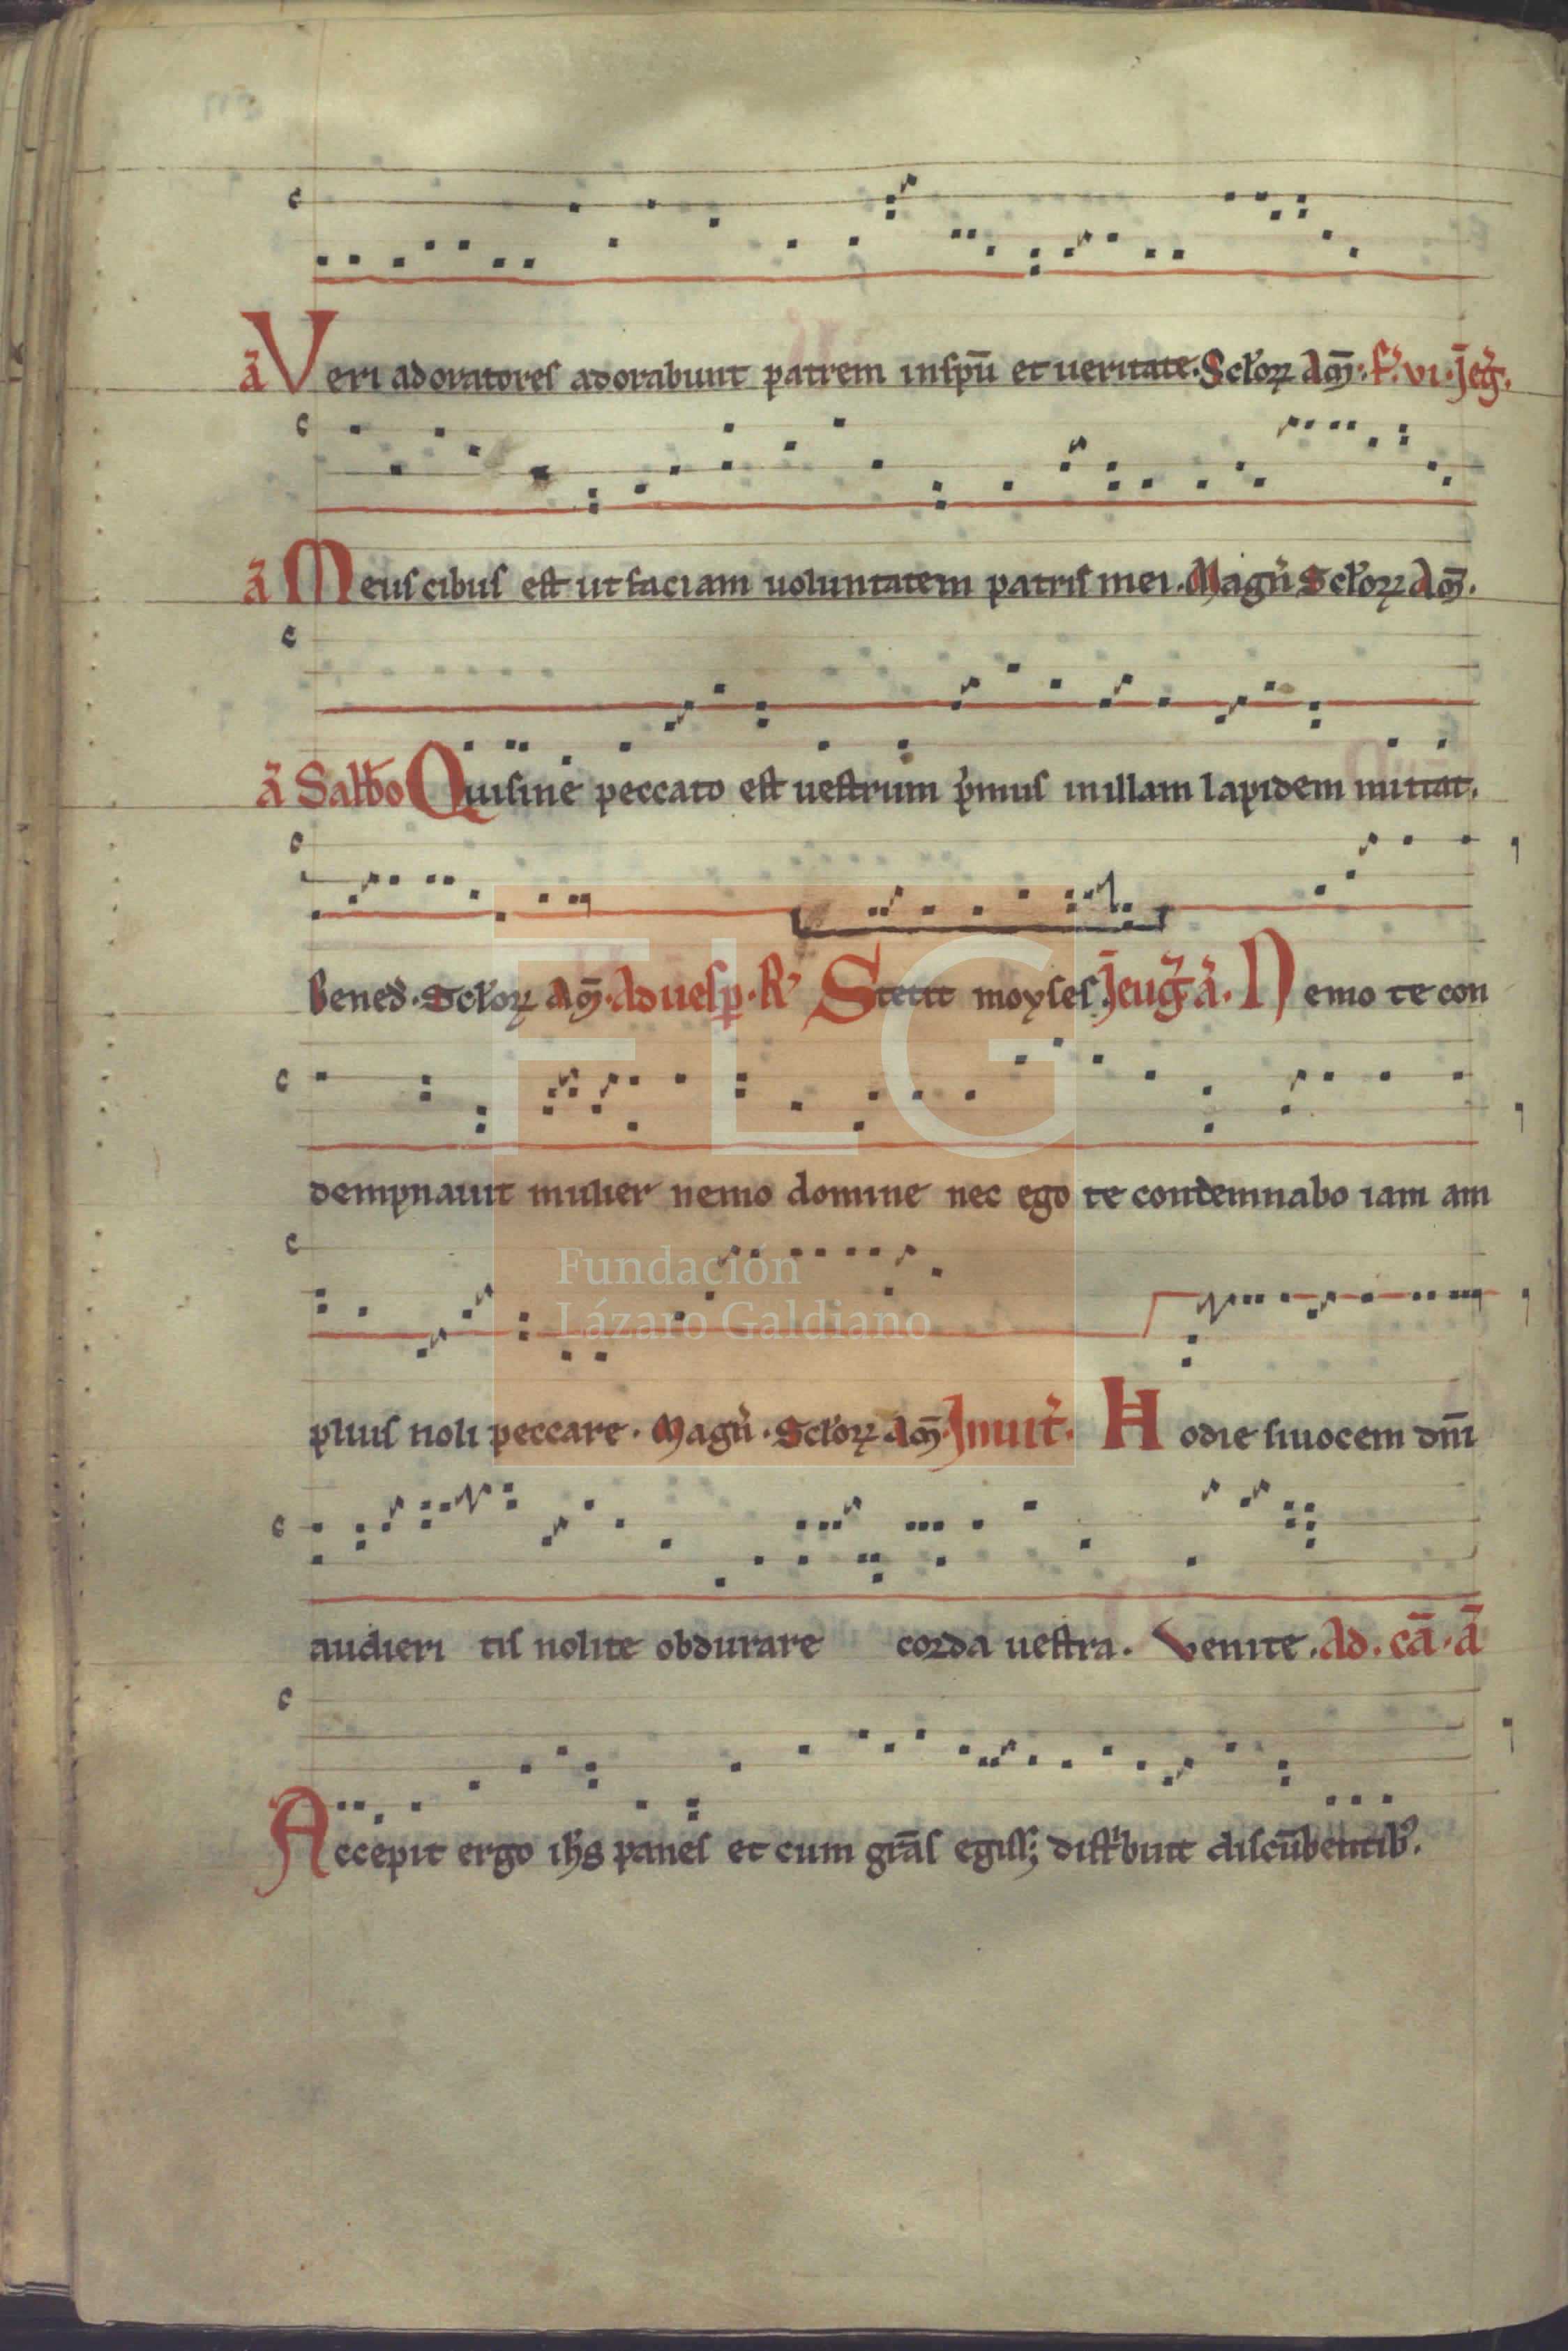 ā Veri adoratores adorabunt patrem in spū et ueritate. Sc̄lorꝝ Am̄. f. vi. J̄ euḡ.
ā Meus cibus est ut faciam uoluntatem patris mei. Magn̄ Sc̄lorꝝ Am̄.
ā Sabb̄o Qui sine peccato est uestrum p̄mus in illam lapidem mittat.
Bened̄. Sc̄lorꝝ Am̄. Ad uesꝑ. R̄ Stetit moyses. J̄ euḡ. ā. Nemo te con
dempnauit mulier nemo domine nec ego te condemnabo iam am
plius noli peccare. Magn̄. Sc̄lorꝝ Am̄. Inuit̄. Hodie si uocem dn̄i
audieri tis nolite obdurare corda uestra. Venite. Ad. cā. ā
Accepit ergo ih̄s panes et cum gr̄as egiss; distⁱbuit discūbentibꝰ.
FLG
Fundación
Lázaro Galdiano